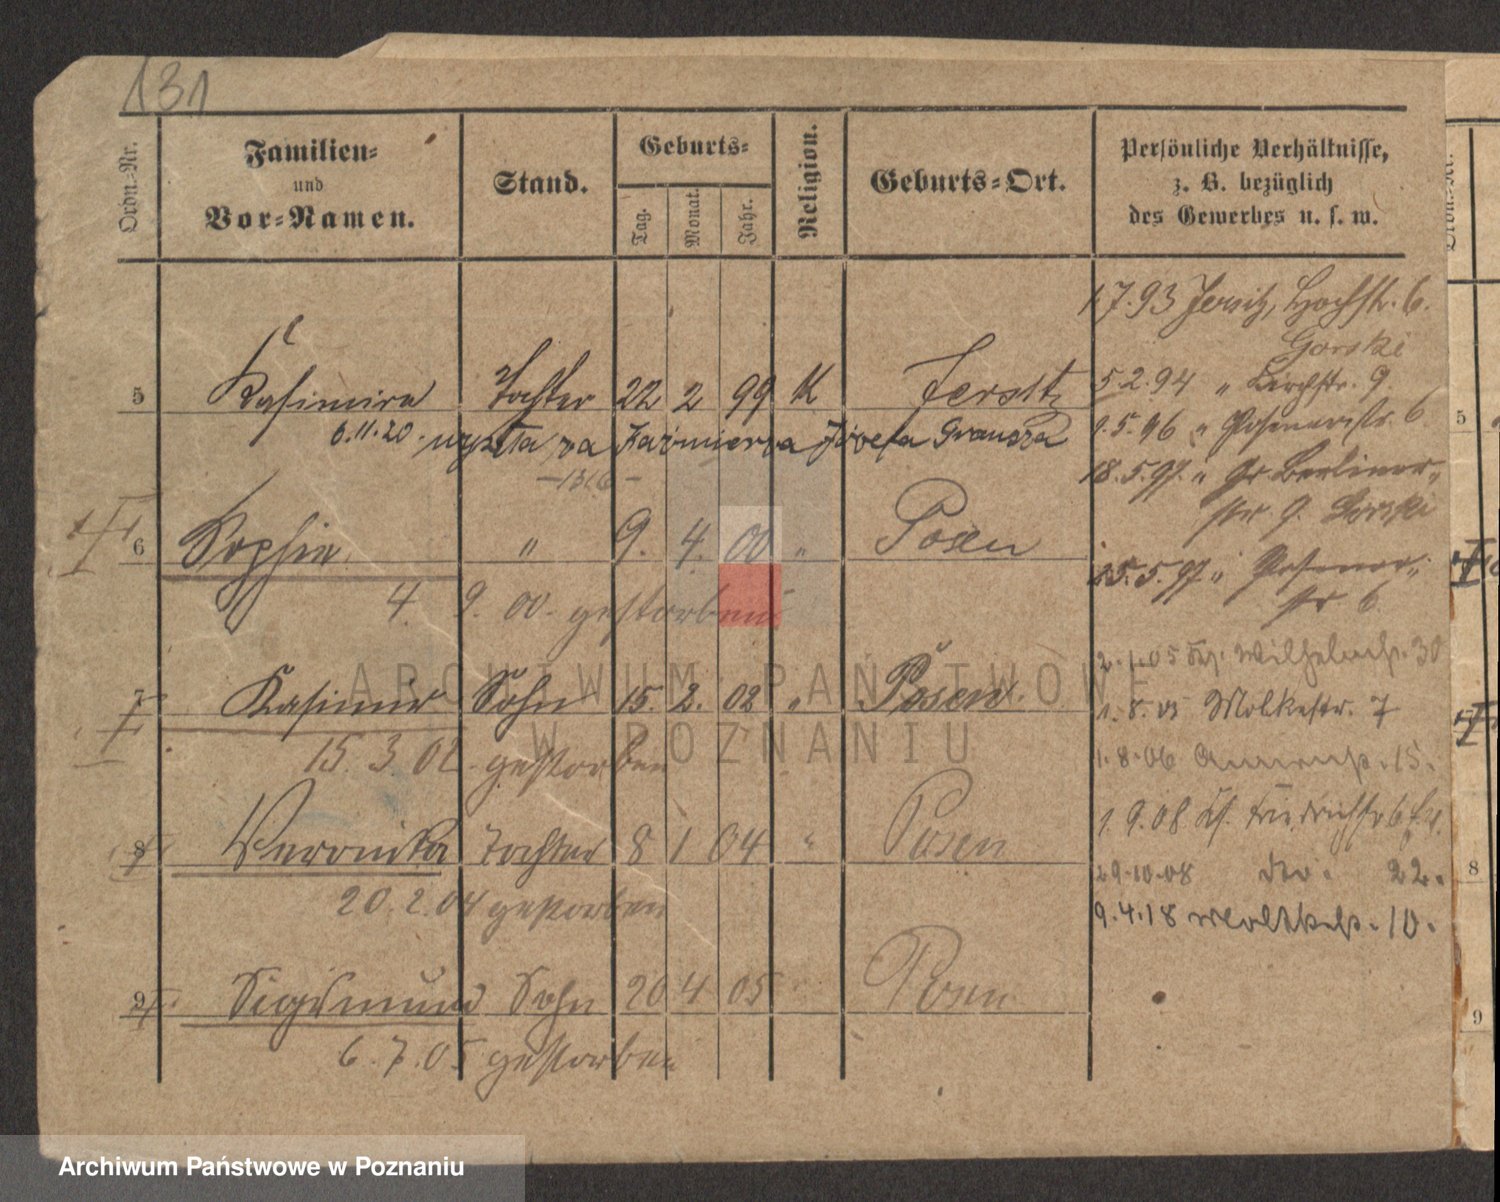 131
Ordn.-Nr.
Familien-
und
Vor-Namen.
Stand.
Geburts-
Tag.
Monat.
Jahr.
Religion.
Geburts-Ort.
Persönliche Verhältnisse,
z. B. bezüglich
des Gewerbes u. s. w.
1.7.93 Jersitz, Hochstr. 6.
Gorski
5 Kasimira Tochter 22 2 99 K Jersitz
5.2.94 " Kirchstr. 9.
6.11.20. wyszła za Kaźmierza Józefa
1.5.96 " Posenerstr. 6
18.5.97. " Gr. Berliner-
str. 9. Gorski
6 Sophie " 9. 4. 00 " Posen
4. 9. 00. gestorben
25.5.97 " Posener-
str 6
7 Kasimir Sohn 15. 2. 02 " Posen.
2.1.05 30
15. 3. 02. gestorben
1.8.05 Molkestr. 7
1.8.06 15.
8 Veronika Tochter 8 1 04 " Posen
1.9.08
20.2.04 gestorben
29.10.08 dto. 22.
9.4.18 Moltkestr. 10.
9 Sigismund Sohn 20 4 05 " Posen
6.7.05 gestorben
5
8
9
ARCHIWUM PAŃSTWOWE
W POZNANIU
Archiwum Państwowe w Poznaniu